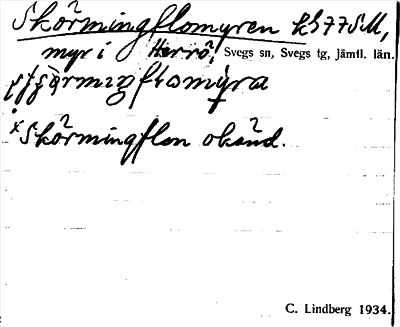 Skörmingflomyren k577SM,
myr i Herrö, Svegs sn, Svegs tg, Jämtl. län.
*Skörmingflon okänd.
C. Lindberg 1934.